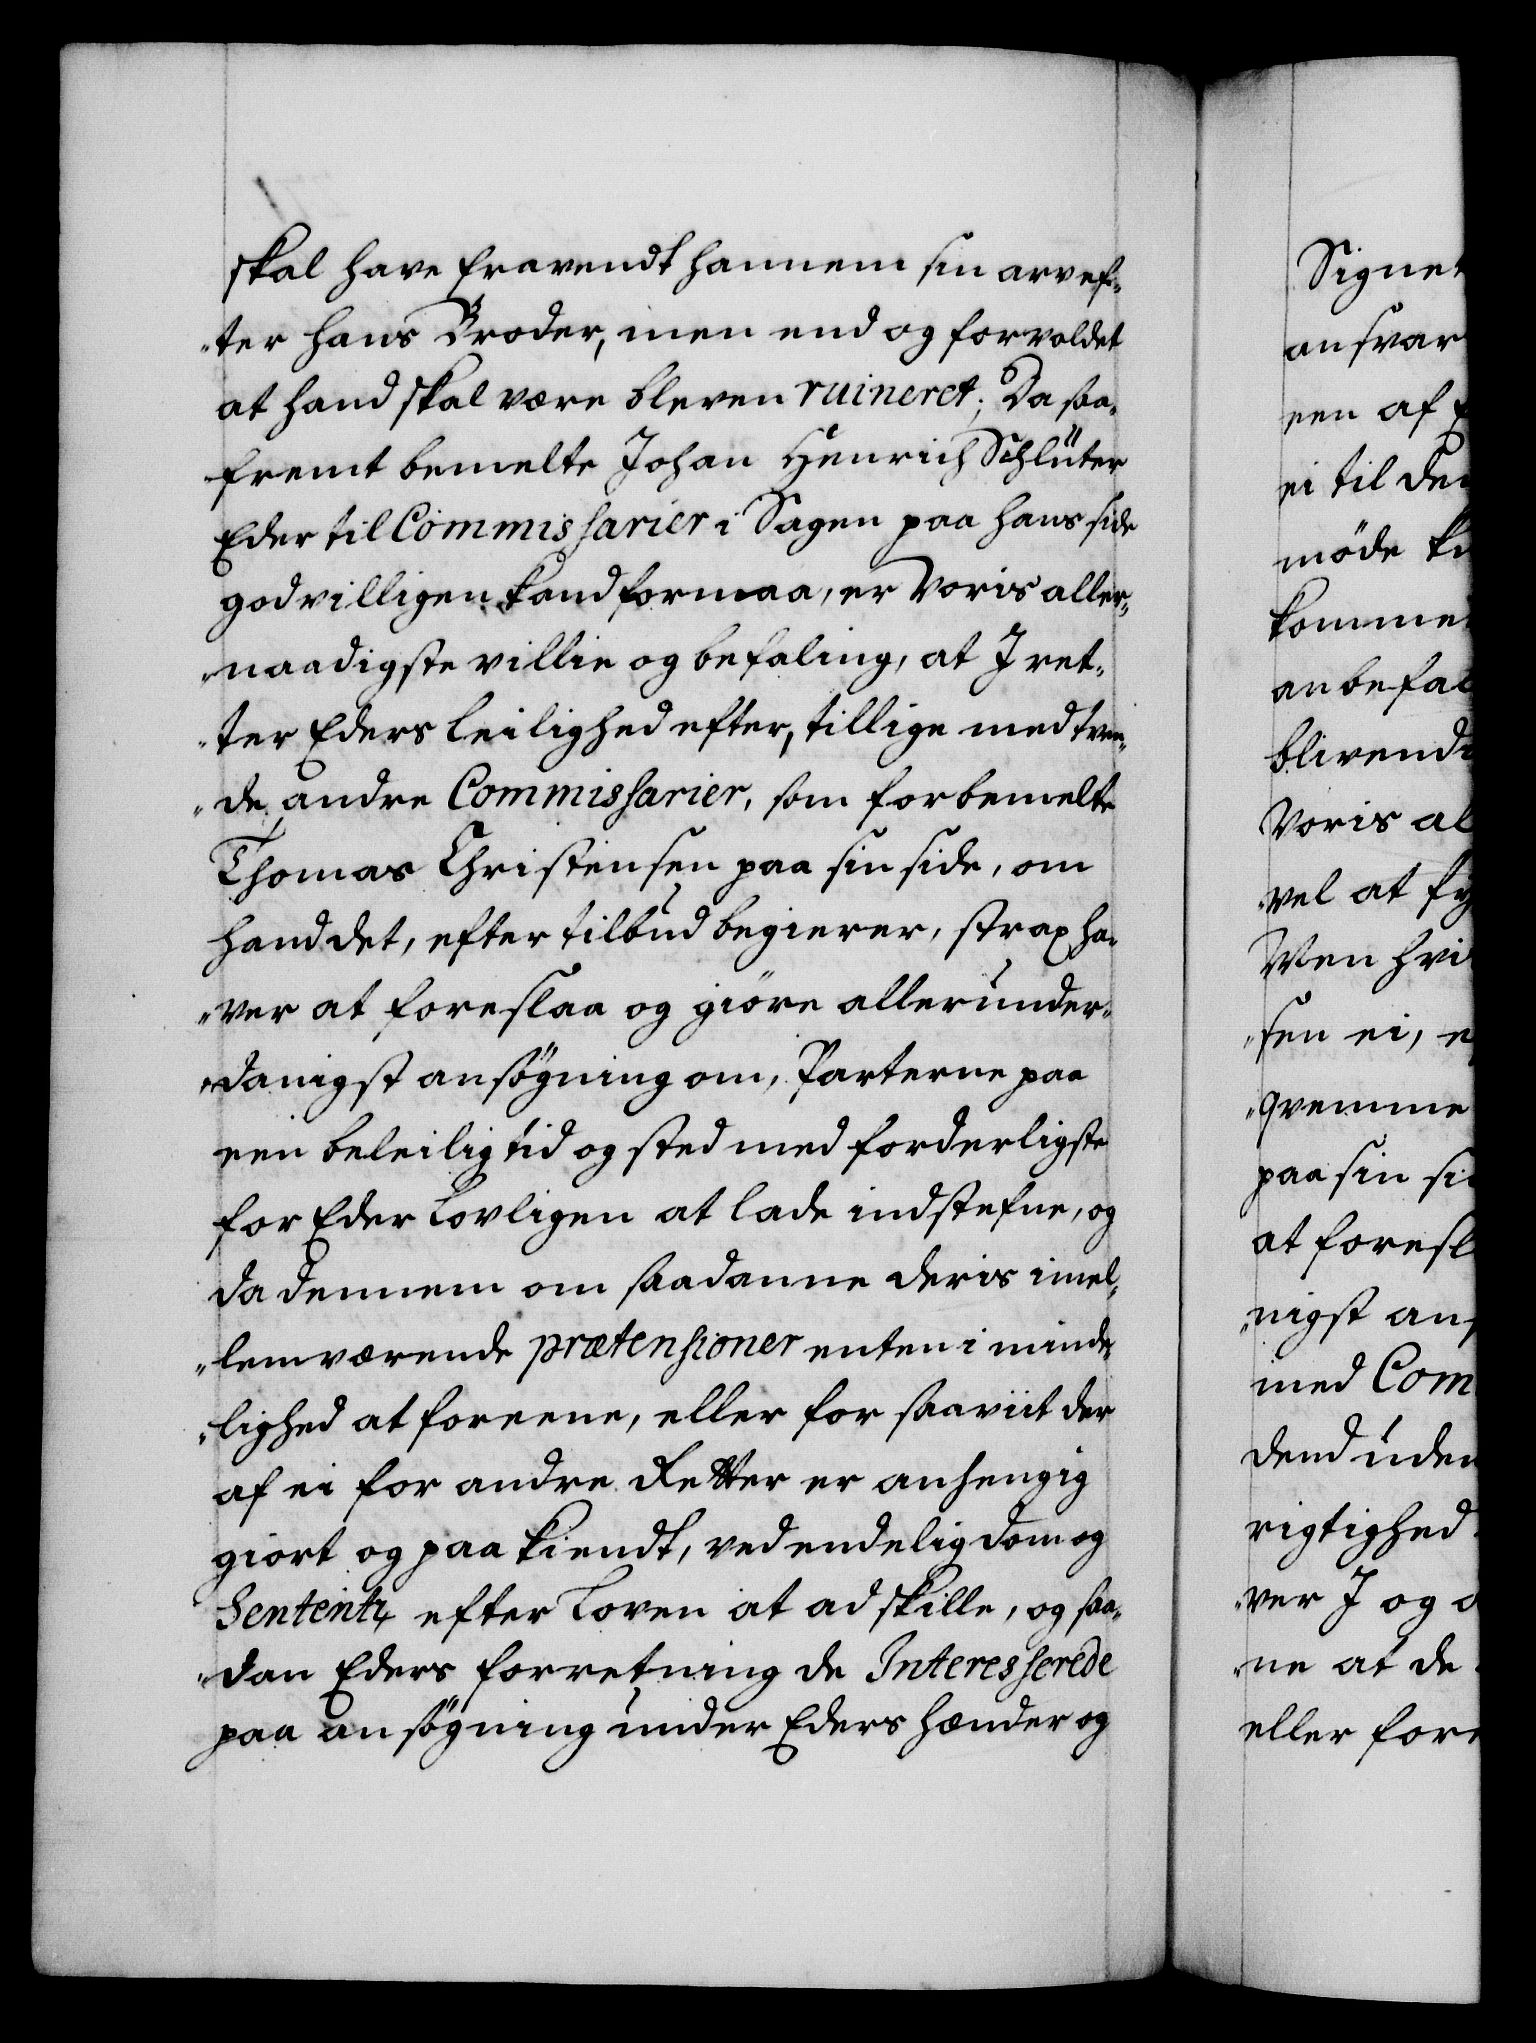 skal have fravendt hannem sin arv ef-
„ter hans Broder, men end og forvoldet
at hand skal være bleven ruineret; Da saa-
fremt bemelte Johan Henrich Schlüter
Eder til Commissarier i Sagen paa hans side
godvilligen kand formaa, er Voris aller-
„naadigste villie og befaling, at I ret-
„ter Eders leilighed efter, tillige med tven-
„de andre Commissarier, som forbemelte
Thomas Christensen paa sin side, om
hand det, efter tilbud begierer, strax ha-
„ver at foreslaa og giöre allerunder-
„danigst ansögning om, Parterne paa
een beleilig tid og sted med forderligste
for Eder Lovligen at lade indstefne, og
da dennem om saadanne deris imel-
„lemværende prætensioner enten i minde-
„lighed at foreene, eller for saaviit der
af ei for andre Retter er anhengig
giort og paa kiendt, ved endelig dom og
Sententz efter Loven at adskille, og saa-
„dan Eders forretning de Interesserede
paa ansögning under Eders hænder og
Signet
ansvar
een af
ei til de
möde
komme
anbefal
blivend
Voris al
vel at
Men hvi
„sen ei,
„qvemme
paa sin si
at foresl
„nigst ans
med Com
dend uden
rigtighed
„ver I og
„ne at de
eller for